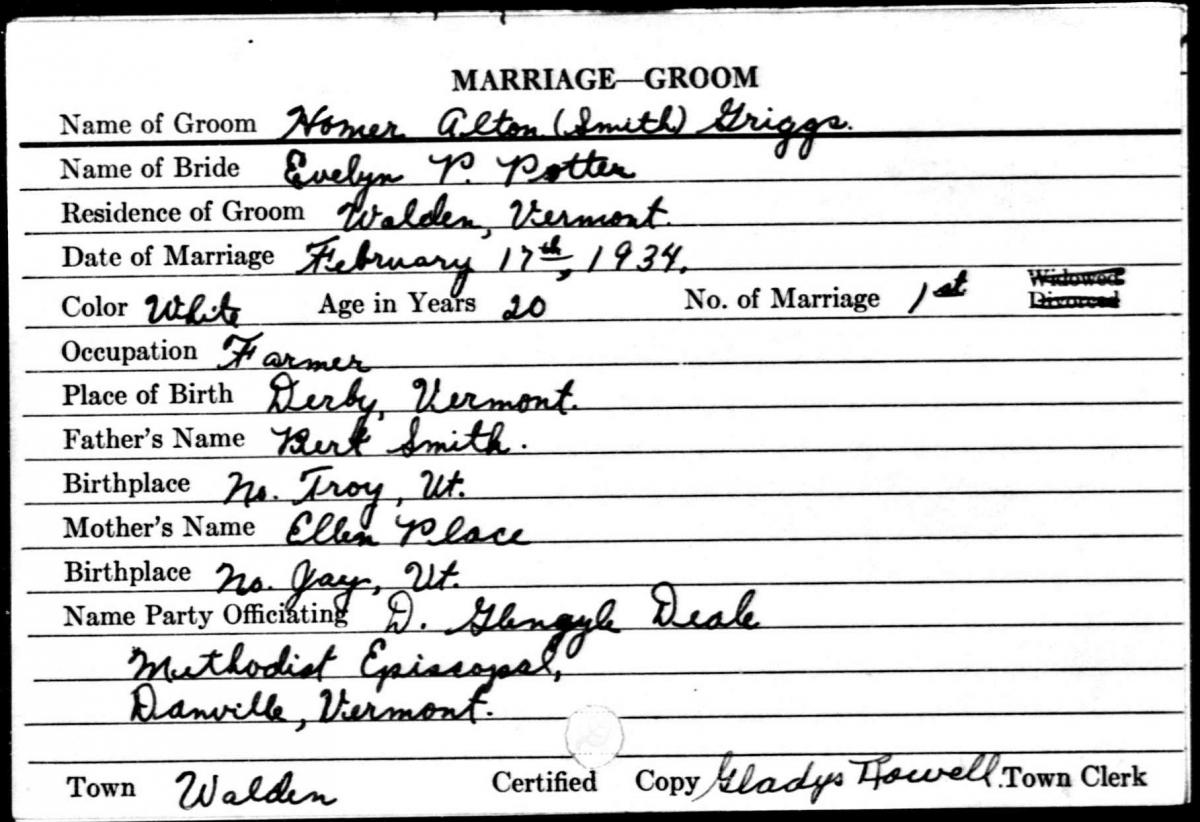 MARRIAGE—GROOM
Name of Groom Homer Alton (Smith) Griggs.
Name of Bride Evelyn P. Potter
Residence of Groom Walden, Vermont.
Date of Marriage February 17th, 1934.
Color White Age in Years 20 No. of Marriage 1st Widowed
Divorced
Occupation Farmer
Place of Birth Derby, Vermont.
Father's Name Bert Smith.
Birthplace No. Troy, Vt.
Mother's Name Ellen Place
Birthplace No. Jay, Vt.
Name Party Officiating D. Glengyle Deale
Methodist Episcopal,
Danville, Vermont.
Town Walden Certified Copy Gladys Rowell. Town Clerk